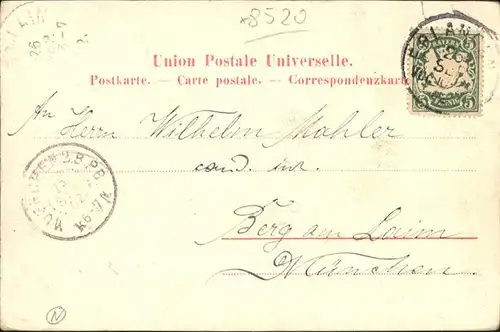 *8520
Union Postale Universelle.
Postkarte. — Carte postale. — Correspondenzkarte
An Herrn Wilhelm Mahler
cand. iur.
Berg am Laim
München.
5 5
MUENCHEN 2.B.P.B
N